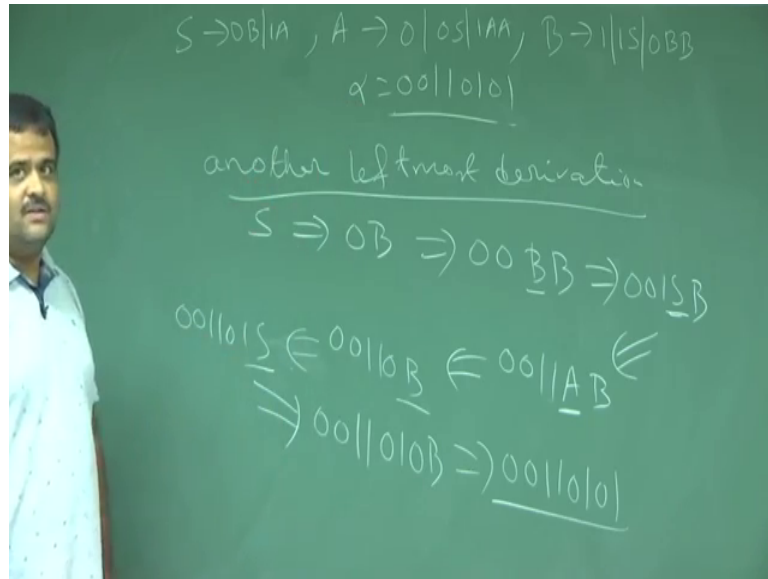 S → 0B|1A , A → 0|0S|1AA, B → 1|1S|0BB
α = 00110101
another leftmost derivation
S ⇒ 0B ⇒ 00BB ⇒ 001SB
001101S ⇐ 00110B ⇐ 0011AB ⇐
⇒ 0011010B ⇒ 00110101